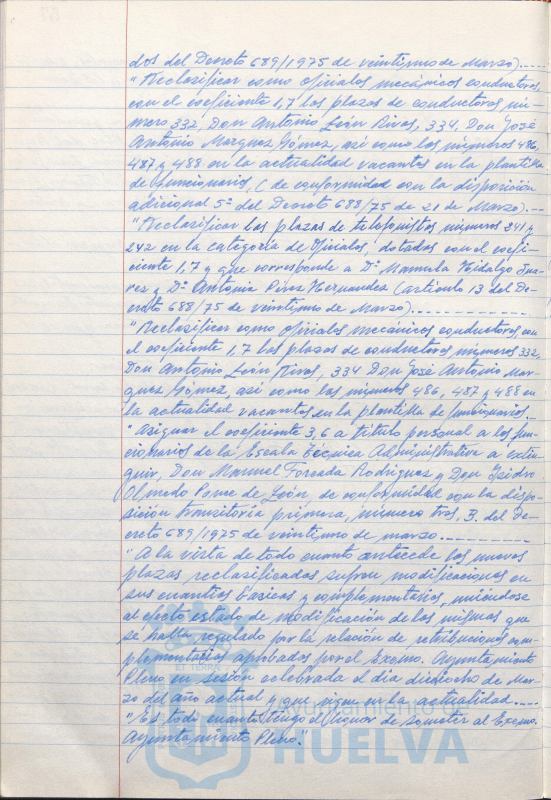 dos del Decreto 689/1975 de veintiuno de Marzo).----
"Reclasificar como oficiales mecánicos conductores,
con el coeficiente 1,7 las plazas de conductores, nú-
mero 332, Don Antonio León Rivas, 334, Don José
Antonio Marquez Gómez, así como los números 486,
487 y 488 en la actualidad vacantes en la plantilla
de funcionarios, (de conformidad con la disposición
adicional 5ª del Decreto 688/75 de 21 de Marzo).--
"Reclasificar las plazas de telefonistas números 241 y
242 en la categoría de Oficiales, dotadas con el coefi-
ciente 1,7 y que corresponde a Dª Manuela Hidalgo Sua-
rez y Dª Antonia Pérez Hernandez (artículo 13 del De-
creto 688/75 de veintiuno de Marzo).-------------
"Reclasificar como oficiales mecánicos conductores, con
el coeficiente 1,7 las plazas de conductores números 332,
Don Antonio León Rivas, 334 Don José Antonio Mar-
quez Gómez, así como los números 486, 487 y 488 en
la actualidad vacantes en la plantilla de funcionarios.--
"Asignar el coeficiente 3,6 a título personal a los fun-
cionarios de la Escala Técnica Administrativa a extin-
guir, Don Manuel Forcada Rodriguez y Don Isidro
Olmedo Ponce de León, de conformidad con la dispo-
sición transitoria primera, número tres, B. del De-
creto 689/1975 de veintiuno de marzo.-----------
"A la vista de todo cuanto antecede las nuevas
plazas reclasificadas sufren modificaciones en
sus cuantías básicas y complementarias, uniéndose
al efecto estado de modificación de las mismas que
se halla regulado por la relación de retribuciones com-
plementarias aprobadas por el Excmo. Ayuntamiento
Pleno en sesión celebrada el día dieciocho de Mar-
zo del año actual y que rigen en la actualidad.----
"Es todo cuanto tengo el honor de someter al Excmo.
Ayuntamiento Pleno".
HUELVA